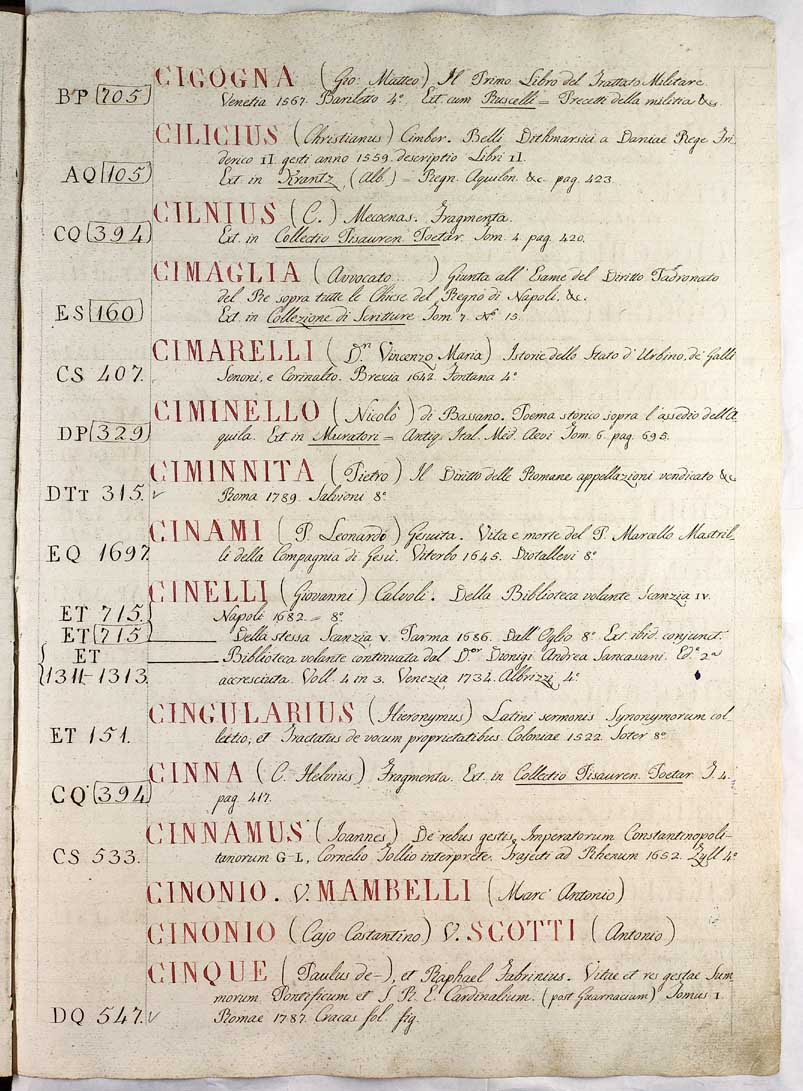 CIGOGNA (Gio: Matteo) Il Primo Libro del Trattato Militare
BP 705 Venetia 1567. Bariletto 4.º Ext. cum Ruscelli = Precetti della militia &c.
CILICIUS (Christianus) Cimber. Belli Dithmarsici a Daniae Rege Fri-
derico II. gesti anno 1559. descriptio Libri II.
AQ 105 Ext. in Krantz (Alb.) = Regn. Aquilon. &c. pag. 423.
CILNIUS (C.) Mecoenas. Fragmenta.
CQ 394 Ext. in Collectio Pisauren. Poetar. Tom. 4. pag. 420.
CIMAGLIA (Avvocato....) Giunta all' Esame del Diritto Padronato
del Re sopra tutte le Chiese del Regno di Napoli. &c.
ES 160 Ext. in Collezione di Scritture Tom. 7. Nº 15.
CIMARELLI (D.n Vincenzo Maria) Istorie dello Stato d' Urbino, de' Galli
CS 407. Senoni, e Corinalto. Brescia 1642. Fontana 4.º
CIMINELLO (Nicolò) di Bassano. Poema storico sopra l' assedio dell' A-
DP 329 quila. Ext in Muratori = Antiq. Ital. Med. Aevi Tom. 6. pag. 695.
CIMINNITA (Pietro) Il Diritto delle Romane appellazioni vendicato &c
DTt 315. Roma 1789. Salvioni 8º
CINAMI (P. Leonardo) Gesuita. Vita e morte del P. Marcello Mastril-
EQ 1697. li della Compagnia di Gesù. Viterbo 1645. Diotallevi 8º
CINELLI (Giovanni) Calvoli. Della Biblioteca volante Scanzia IV.
ET 715. Napoli 1682. = 8º
ET 715 Della stessa Scanzia V. Parma 1686. Dall' Oglio 8º Ext. ibid. conjunct.
ET Biblioteca volante continuata dal D.or Dionigi Andrea Sancassani. Ed.e 2.a
1311-1313. accresciuta. Voll. 4 in 3. Venezia 1734. Albrizzi 4º
CINGULARIUS (Hieronymus) Latini sermonis Synonymorum col-
ET 151. lectio; et Tractatus de vocum proprietatibus. Coloniae 1522. Soter 8º
CINNA (C. Helvius) Fragmenta. Ext. in Collectio Pisauren. Poetar. T. 4.
CQ 394 pag. 417.
CINNAMUS (Ioannes) De rebus gestis Imperatorum Constantinopoli-
CS 533. tanorum G-L, Cornelio Tollio interprete. Trajecti ad Rhenum 1652. Zyll 4º
CINONIO. V. MAMBELLI (Marc' Antonio)
CINONIO (Cajo Costantino) V. SCOTTI (Antonio)
CINQUE (Paulus de-), et Raphael Fabrinius. Vitae et res gestae Sum-
morum Pontificum et S. R. E. Cardinalium. (post Guarnacium) Tomus I.
DQ 547. Romae 1787. Cracas fol. fig.